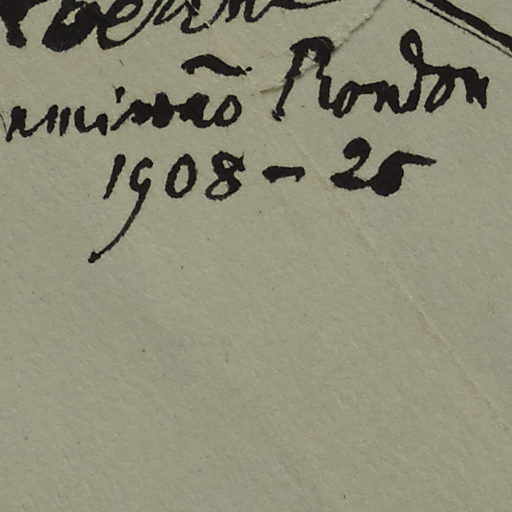 ommissão Rondon
1908 - 25